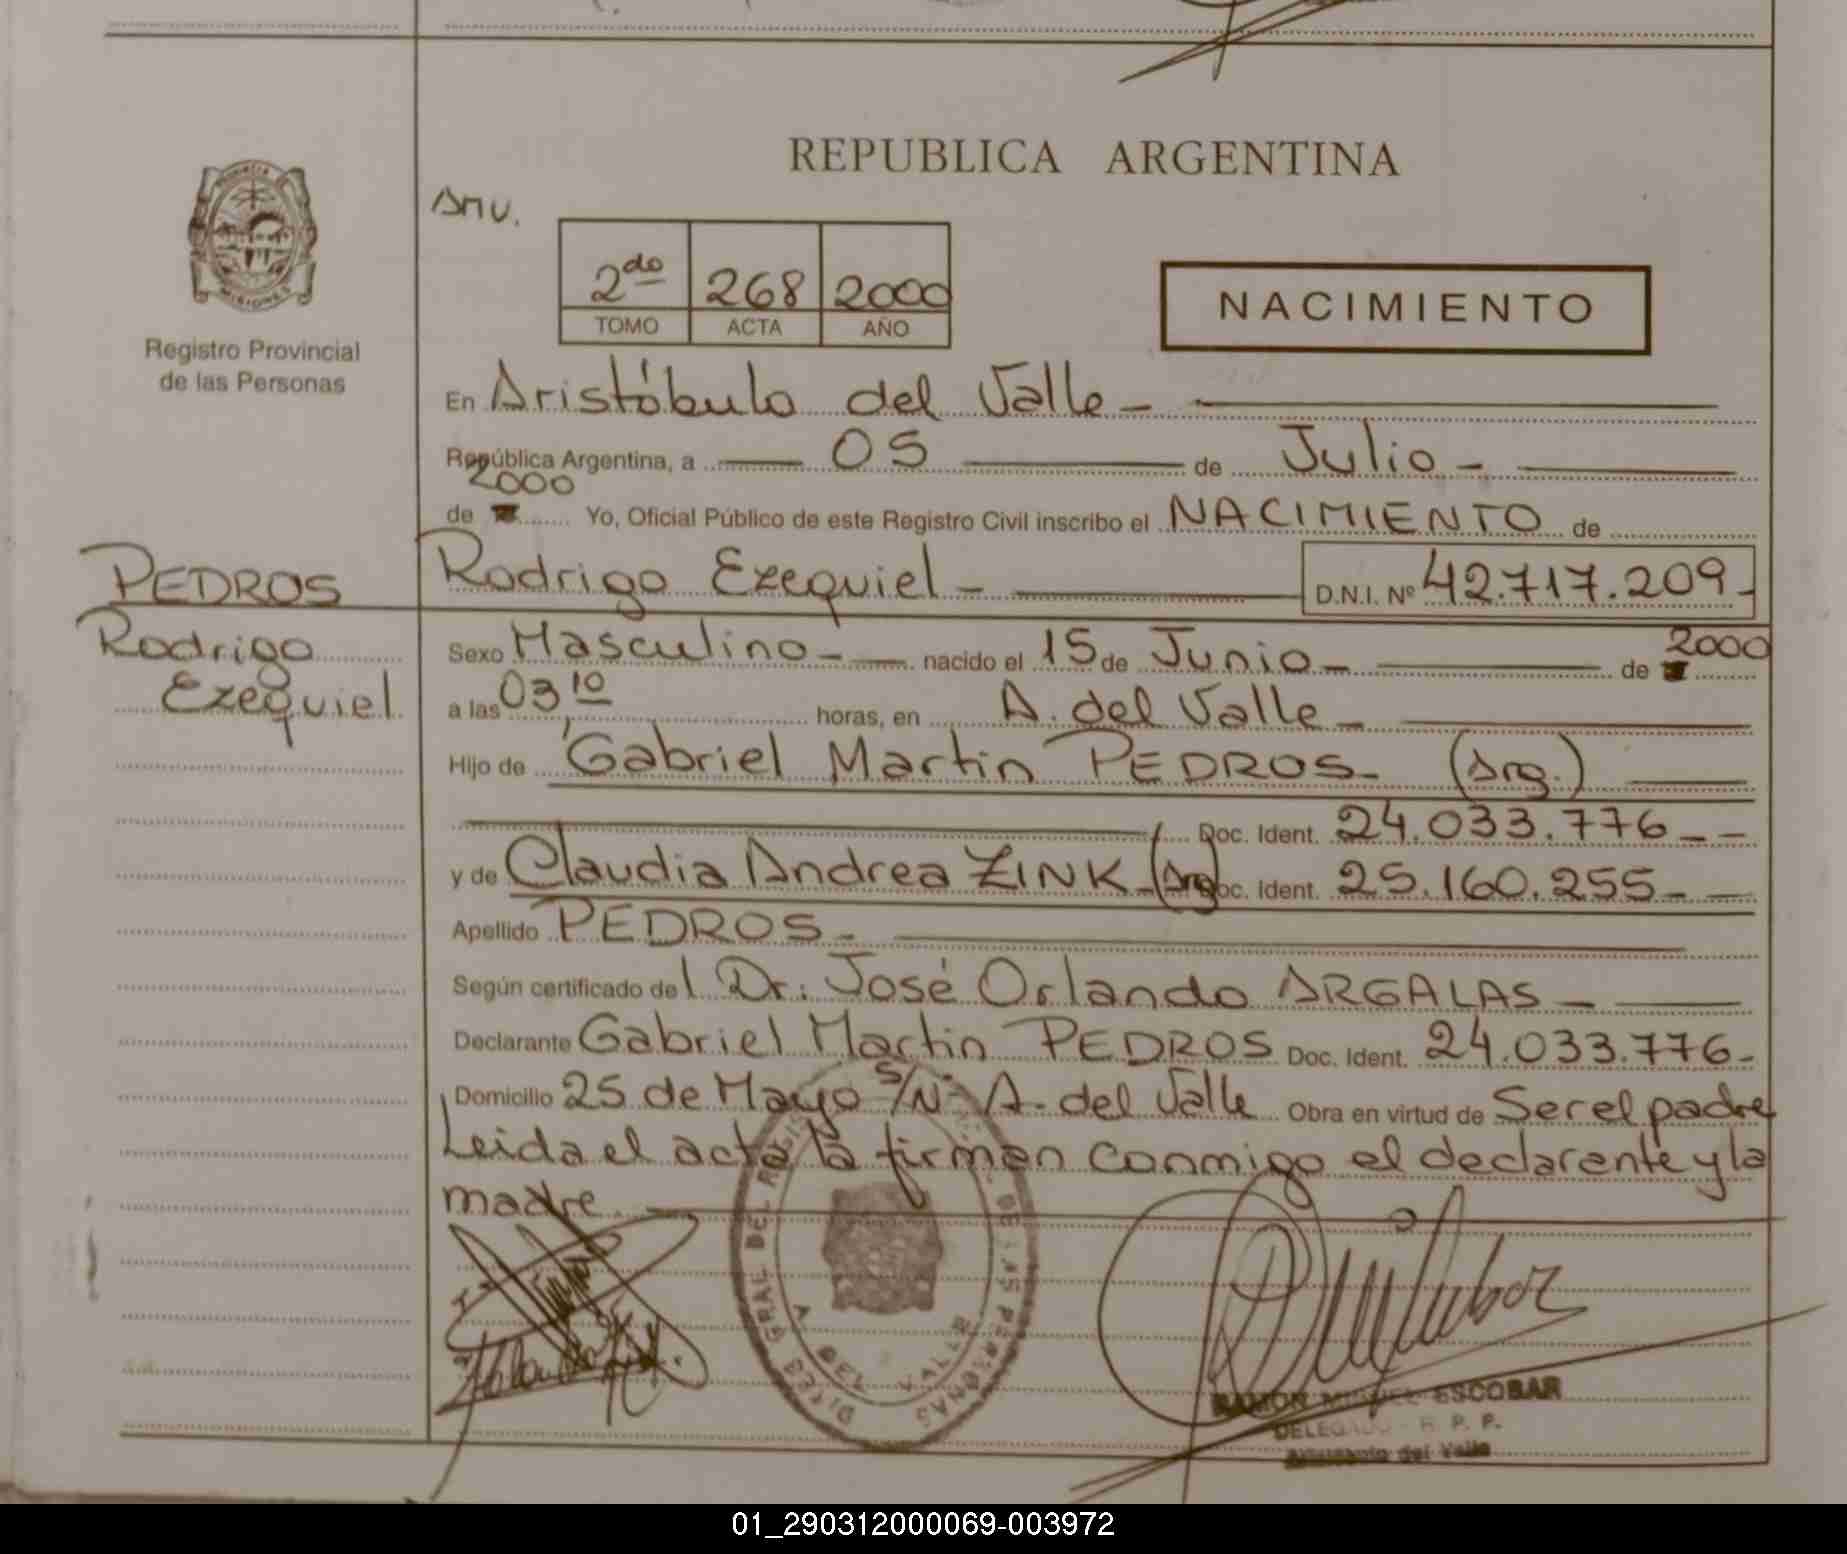 REPUBLICA ARGENTINA
PROVINCIA
MISIONES
Registro Provincial
de las Personas
2do 268 2000
TOMO ACTA AÑO
NACIMIENTO
En Aristóbulo del Valle -
República Argentina, a 05 de Julio -
2000
de Yo, Oficial Público de este Registro Civil inscribo el NACIMIENTO de
PEDROS Rodrigo Ezequiel - D.N.I. Nº 42.717.209-
Rodrigo
Ezequiel
Sexo Masculino - nacido el 15 de Junio - de 2000
a las 03,10 horas, en A. del Valle -
Hijo de Gabriel Martin PEDROS - (Arg.)
Doc. Ident. 24.033.776 - -
y de Claudia Andrea ZINK - (Arg) Doc. Ident. 25.160.255 -
Apellido PEDROS -
Según certificado del Dr. José Orlando ARGALAS -
Declarante Gabriel Martin PEDROS Doc. Ident. 24.033.776-
Domicilio 25 de Mayo S/Nº A. del Valle Obra en virtud de Ser el padre
Leida el acta la firman conmigo el declarante y la
madre
A DEL VALLE
RAMON MIGUEL ESCOBAR
DELEGADO - R. P. P.
Aristobulo del Valle
01_290312000069-003972